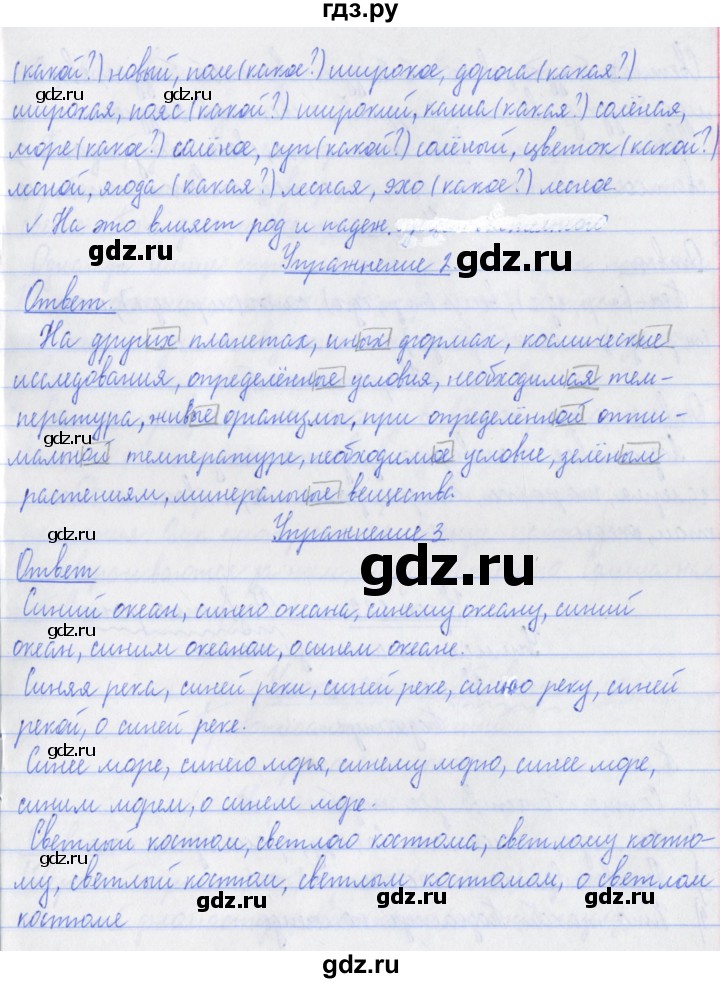 гдз.ру
(какой?) новый, поле (какое?) широкое, дорога (какая?)
gdz.ru gdz.ru gdz.ru
широкая, пояс (какой?) широкий, каша (какая?) солёная,
море (какое?) солёное, суп (какой?) солёный, цветок (какой?)
лесной, ягода (какая?) лесная, эхо (какое?) лесное
✓ На это влияет род и падеж.
gdz.ru gdz.ru
Упражнение 2.
Ответ.
gdz.ru
На других планетах, иных формах, космические
исследования, определённые условия, необходимая тем-
пература, живые организмы, при определённой опти-
gdz.ru
мальной температуре, необходимое условие, зелёным
растениям, минеральные вещества.
gdz.ru
Упражнение 3
gdz.ru
Ответ
Синий океан, синего океана, синему океану, синий
gdz.ru
океан, синим океаном, о синем океане.
Синяя река, синей реки, синей реке, синюю реку, синей
рекой, о синей реке.
gdz.ru
Синее море, синего моря, синему морю, синее море,
синим морем, о синем море.
Светлый костюм, светлого костюма, светлому костю-
gdz.ru
му, светлый костюм, светлым костюмом, о светлом
gdz.ru gdz.ru gdz.ru
костюме
gdz.ru